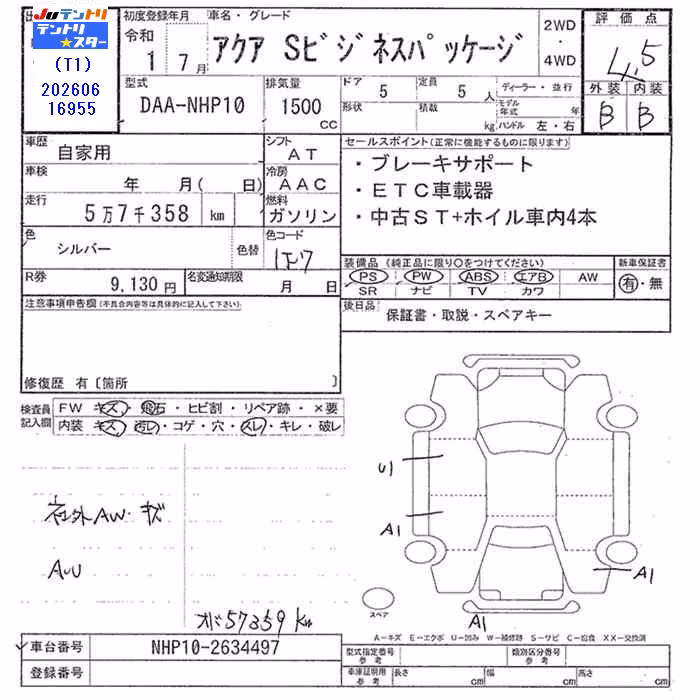 出
Juテントリ
テントリ
★スター
(T1)
202606
16955
初度登録年月
令和
1 7月
車名・グレード
アクア Sビジネスパッケージ
2WD
・
4WD
評価点
4.5
外装 内装
B B
型式
DAA-NHP10
排気量
1500
CC
ドア 5
形状
定員 5 人
積載 kg
ディーラー・並行
モデル
年式 年
ハンドル 左・右
車歴
自家用
シフト
AT
車検
年 月( 日)
冷房
AAC
走行
5万7千358 km
燃料
ガソリン
色
シルバー
色替
色コード
1F7
R券
9,130円
名変通知期限
月 日
セールスポイント(正常に機能するものに限ります)
・ブレーキサポート
・ETC車載器
・中古ST+ホイル車内4本
装備品(純正品に限り○をつけてください)
PS PW ABS エアB AW
SR ナビ TV カワ
新車保証書
有・無
後日品
保証書・取説・スペアキー
注意事項申告欄(不具合内容等は具体的に記入して下さい)
修復歴 有〔箇所 〕
検査員
記入欄
FW キズ・飛石・ヒビ割・リペア跡・×要
内装 キズ・汚レ・コゲ・穴・スレ・キレ・破レ
社外AW・キズ
AU
オド57359km
U1
A1
A1
A1
スペア
A-キズ E-エクボ U-凹み W-補修跡 S-サビ C-腐食 XX-交換済
車台番号
NHP10-2634497
登録番号
型式指定番号
参考
類別区分番号
参考
車庫証明用
参考
長さ cm 幅 cm 高さ cm